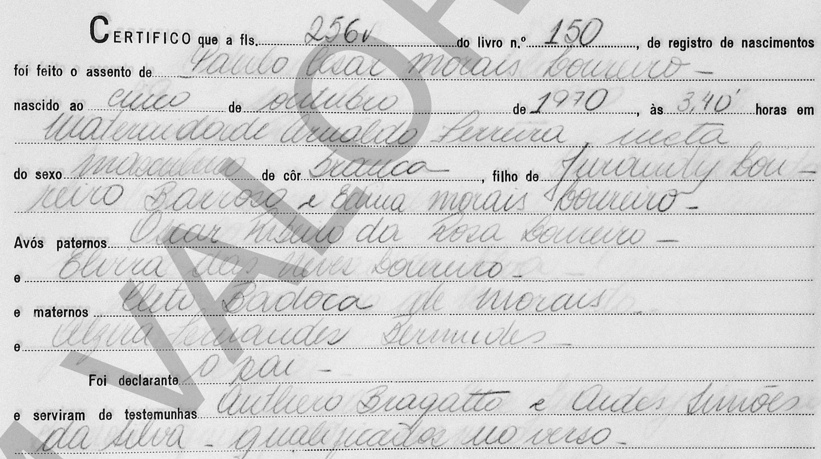 CERTIFICO que a fls. 256v do livro n.º 150, de registro de nascimentos
foi feito o assento de Paulo Cesar Morais Loureiro -
nascido ao cinco de outubro de 1970, às 3,40 horas em
Maternidade Arnaldo Ferreira, nesta
do sexo masculino de côr Branca, filho de Jurandy Lou-
reiro Barroso e Edma Morais Loureiro -
Avós paternos Oscar da Rosa Loureiro -
e Elvira das Neves Loureiro -
e maternos Badoca de Morais
e Fernandes Bermudes -
Foi declarante o pai -
e serviram de testemunhas Anthero Bragatto e Simões
da Silva - qualificados no verso -
VALOR